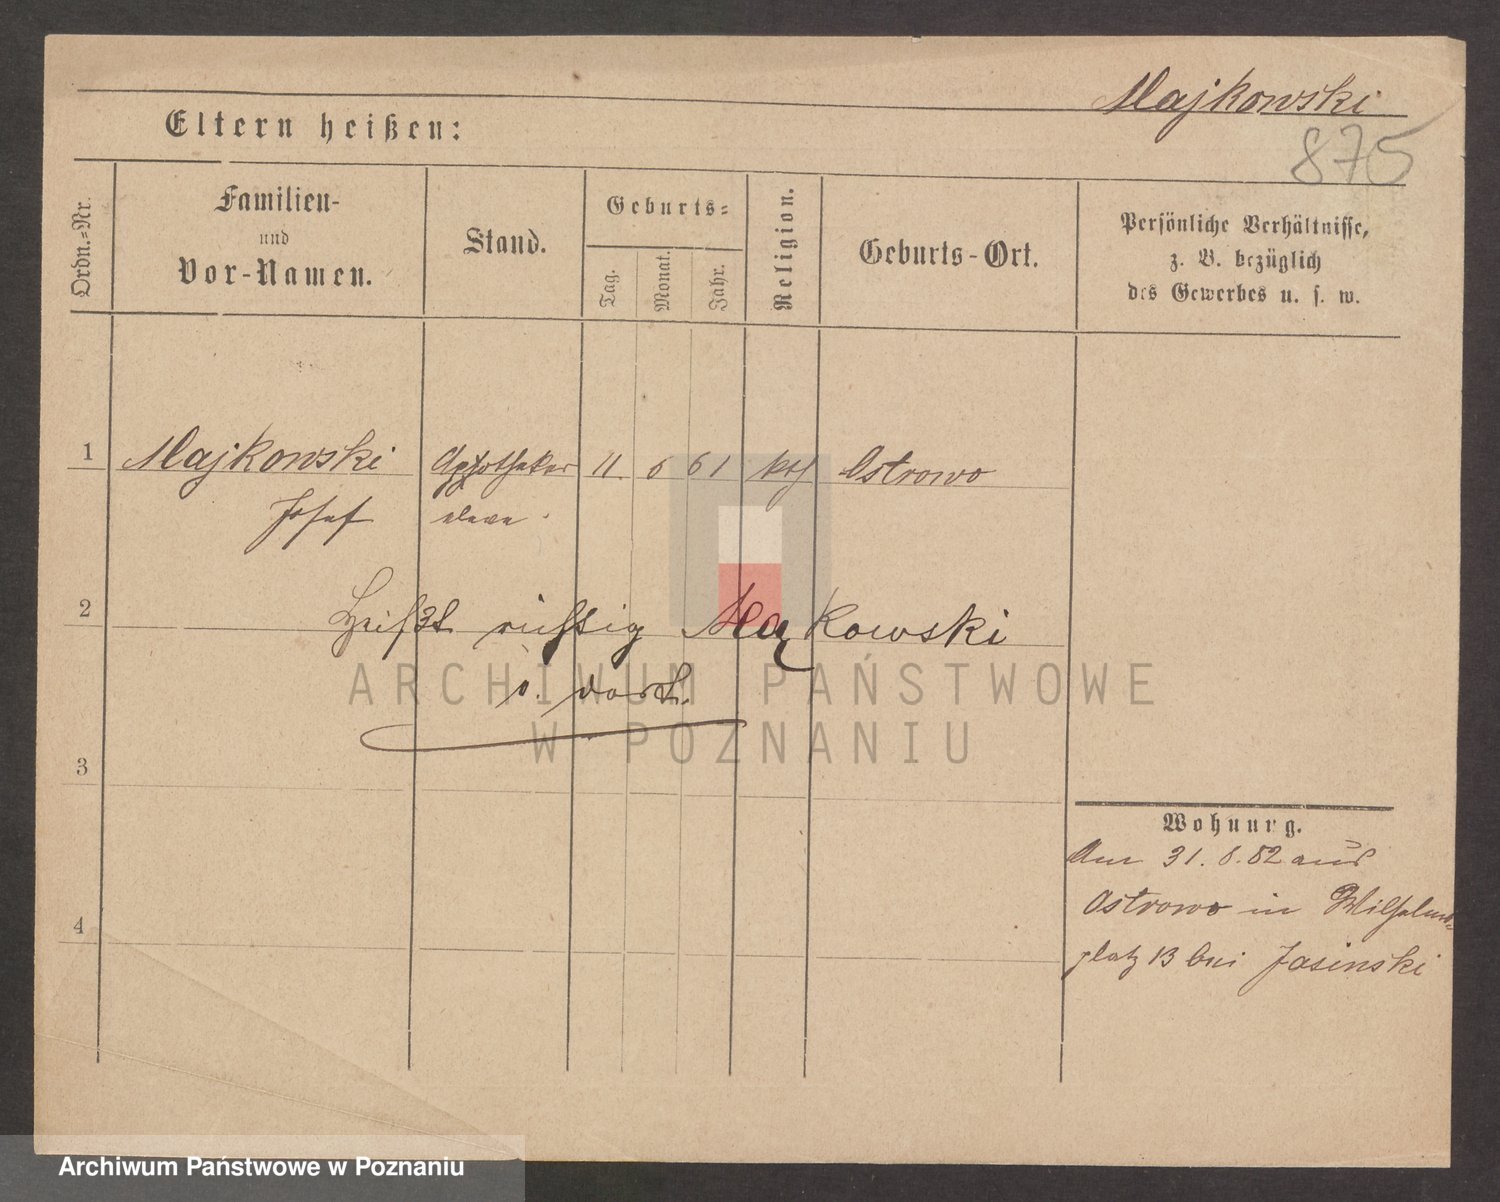 Majkowski
875
Eltern heißen:
Ordn.=Nr.
Familien-
und
Vor-Namen.
Stand.
Geburts=
Tag.
Monat.
Jahr.
Religion.
Geburts-Ort.
Persönliche Verhältnisse,
z. B. bezüglich
des Gewerbes u. s. w.
1 Majkowski Apotheker 11. 6 61 kth Ostrowo
Josef eleve
2 Heißt richtig Mąkowski
s. dort.
ARCHIWUM PAŃSTWOWE
W POZNANIU
3
4
Wohnung.
Am 31. 8. 82 aus
Ostrowo in Wilhelms-
platz 13 bei Jasinski
Archiwum Państwowe w Poznaniu